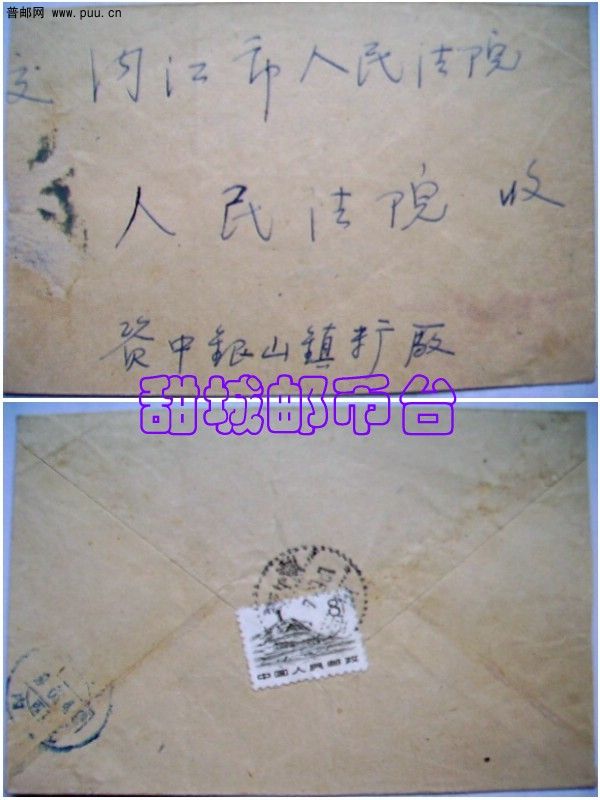 普邮网 www.puu.cn
交 内江市人民法院
人民法院 收
资中銀山鎮
甜城邮币台
8
中国人民邮政